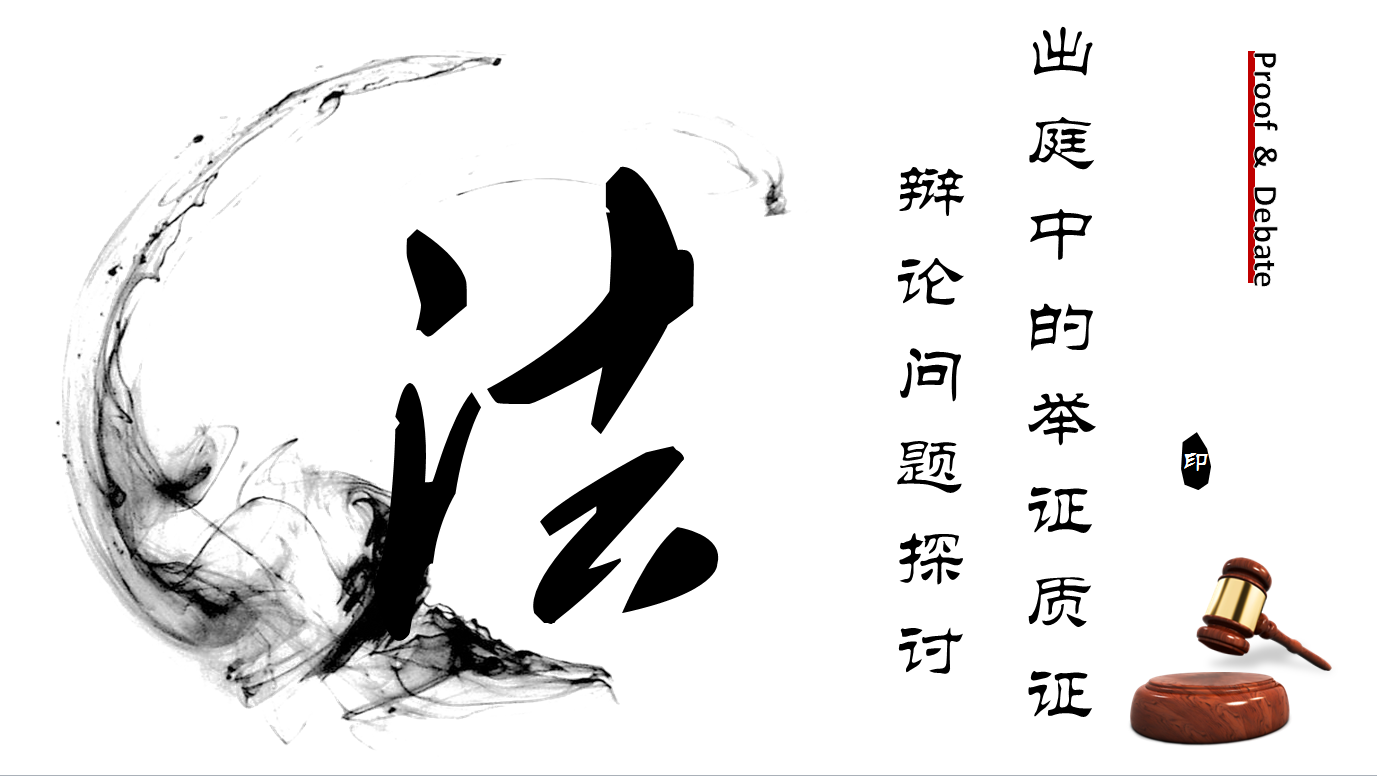 Proof & Debate
出庭中的举证质证
辩论问题探讨
法
印